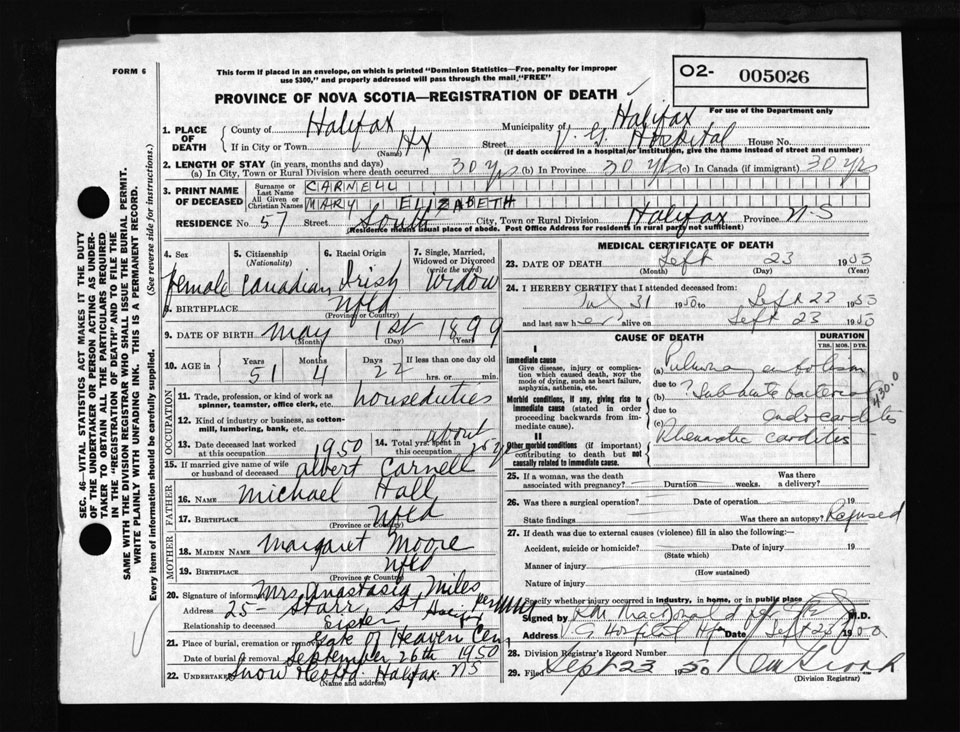 FORM 6
This form if placed in an envelope, on which is printed "Dominion Statistics—Free, penalty for improper
use $300," and properly addressed will pass through the mail "FREE"
O2- 005026
PROVINCE OF NOVA SCOTIA—REGISTRATION OF DEATH
For use of the Department only
1. PLACE OF DEATH
County of Halifax Municipality of Halifax
If in City or Town Hx Street V. G Hospital House No.
(Name) (If death occurred in a hospital or institution, give the name instead of street and number)
2. LENGTH OF STAY (in years, months and days)
(a) In City, Town or Rural Division where death occurred 30 yrs (b) In Province 30 yrs (c) In Canada (if immigrant) 30 yrs
3. PRINT NAME OF DECEASED
Surname or Last Name CARNELL
All Given or Christian Names MARY ELIZABETH
RESIDENCE No 57 Street South City, Town or Rural Division Halifax Province N-S
(Residence means usual place of abode. Post Office Address for residents in rural parts not sufficient)
4. Sex
5. Citizenship (Nationality)
6. Racial Origin
7. Single, Married, Widowed or Divorced (write the word)
Female Canadian Irish Widow
8. BIRTHPLACE Nfld
(Province or Country)
9. DATE OF BIRTH May 1st 1899
(Month) (Day) (Year)
10. AGE in Years 51 Months 4 Days 22 If less than one day old
hrs. or min.
OCCUPATION
11. Trade, profession, or kind of work as spinner, teamster, office clerk, etc. houseduties
12. Kind of industry or business, as cotton-mill, lumbering, bank, etc.
13. Date deceased last worked at this occupation 1950
14. Total yrs. spent in this occupation about
15. If married give name of wife or husband of deceased albert Carnell
FATHER
16. NAME Michael Hall
17. BIRTHPLACE Nfld
(Province or Country)
MOTHER
18. MAIDEN NAME Margaret Moore
19. BIRTHPLACE Nfld
(Province or Country)
20. Signature of informant Mrs Anastasia Miles
Address 25- Starr St
Relationship to deceased Sister
21. Place of burial, cremation or removal Gate of Heaven Cem
Date of burial or removal September 26th 1950
22. Undertaker Snow Halifax NS
(Name and address)
MEDICAL CERTIFICATE OF DEATH
23. DATE OF DEATH Sept 23
(Month) (Day) (Year)
24. I HEREBY CERTIFY that I attended deceased from:
Jul 31 1950 to Sept 22
and last saw her alive on Sept 23 1950
CAUSE OF DEATH
DURATION
YRS. MOS. DYS.
I
Immediate cause
Give disease, injury or complication which caused death, nor the mode of dying, such as heart failure, asphyxia, asthenia, etc.
(a) Pulmonary embolism
due to
Morbid conditions, if any, giving rise to immediate cause (stated in order proceeding backwards from immediate cause).
(b) ? Subacute bacterial
due to
endocarditis
430.0
(c) Rheumatic carditis
II
Other morbid conditions (if important) contributing to death but not causally related to immediate cause.
25. If a woman, was the death associated with pregnancy? Duration weeks. Was there a delivery?
26. Was there a surgical operation? Date of operation 19
State findings Was there an autopsy? Refused
27. If death was due to external causes (violence) fill in also the following:
Accident, suicide or homicide? Date of injury 19
(State which)
Manner of injury
(How sustained)
Nature of injury
Specify whether injury occurred in industry, in home, or in public place
Signed by MacDonald M.D.
Address V G Hospital Hfx Date Sept
28. Division Registrar's Record Number
29. Filed Sept 23 1950
(Division Registrar)
SEC. 46—VITAL STATISTICS ACT MAKES IT THE DUTY
OF THE UNDERTAKER OR PERSON ACTING AS UNDER-
TAKER TO OBTAIN ALL THE PARTICULARS REQUIRED
IN THE "REGISTRATION OF DEATH" AND TO FILE THE
SAME WITH THE DIVISION REGISTRAR WHO SHALL ISSUE THE BURIAL PERMIT.
WRITE PLAINLY WITH UNFADING INK. THIS IS A PERMANENT RECORD.
Every item of information should be carefully supplied. (See reverse side for instructions.)